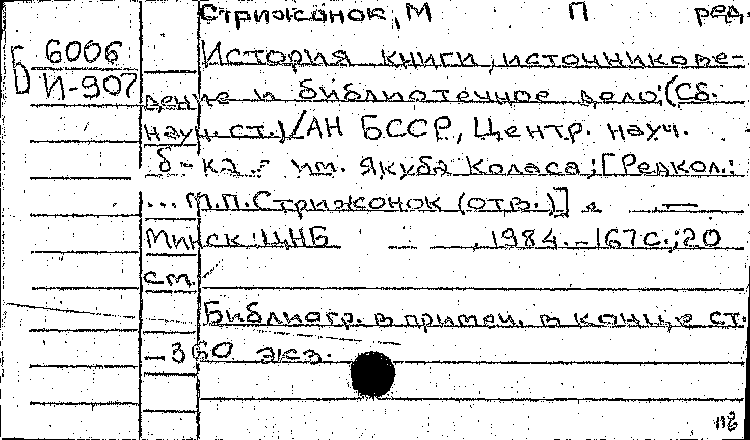 Стрижонок, М П ред.
Б 6006 История книги, источникове-
И-907 дение и библиотечное дело: (Сб.
науч. ст.) / АН БССР, Центр. науч.
б-ка им. Якуба Коласа; [Редкол.:
... М.П. Стрижонок (отв.)]. —
Минск: ЦНБ, 1984. - 167 с.; 20
см.
Библиогр. в примеч. в конце ст.
- 360 экз.